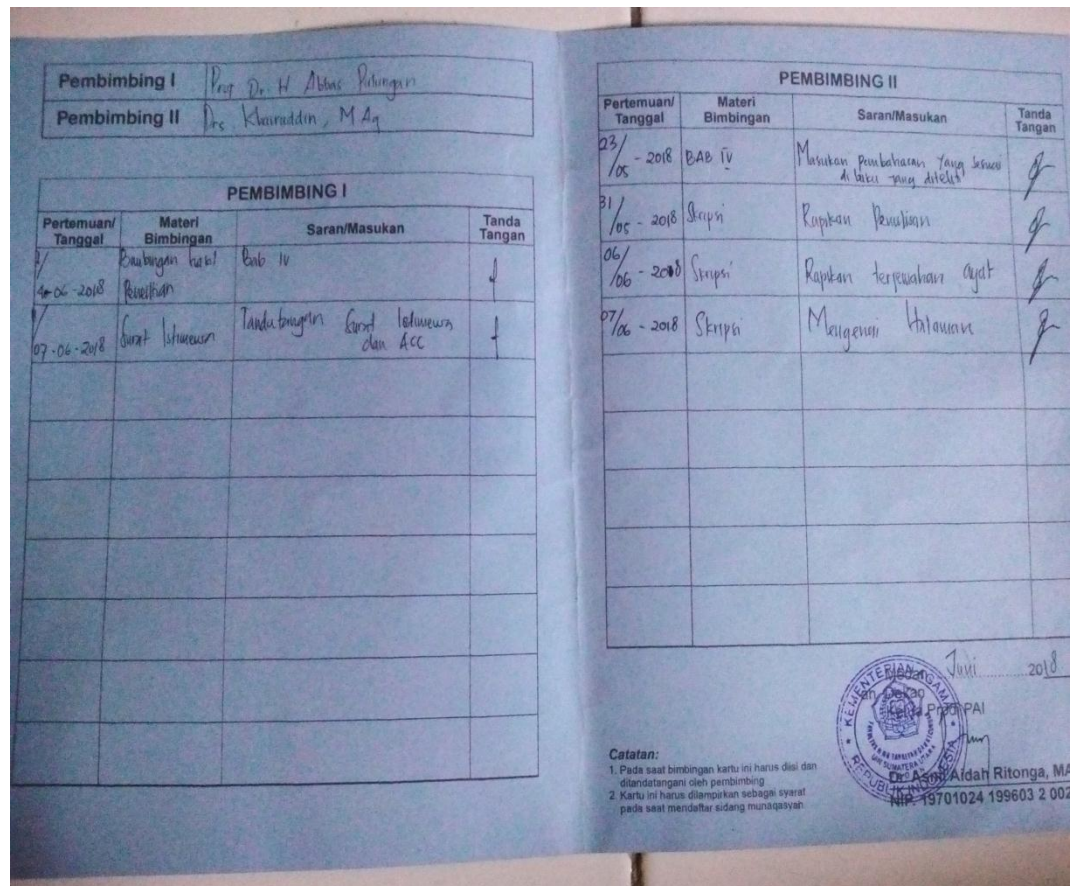 Pembimbing I Prof Dr. H Abbas Pulungan
Pembimbing II Drs. Khairuddin, M.Ag
PEMBIMBING I
Pertemuan/ Tanggal Materi Bimbingan Saran/Masukan Tanda Tangan
Bimbingan hasil Bab IV
-06-2018 Penelitian
Tandatangan Surat Istimewa
07-06-2018 Surat Istimewa dan ACC
PEMBIMBING II
Pertemuan/ Tanggal Materi Bimbingan Saran/Masukan Tanda Tangan
23/05 - 2018 BAB IV Masukan Pembaharan yang sesuai
di buku yang diteliti
31/05 - 2018 Skripsi Rapikan Penulisan
06/06 - 2018 Skripsi Rapikan terjewahan ayat
07/06 - 2018 Skripsi Mengenai Halaman
Medan Juni 2018
an. Dekan
Ketua Prodi PAI
KEMENTERIAN AGAMA
REPUBLIK INDONESIA
UIN SUMATERA UTARA
Dr. Asnil Aidah Ritonga, MA
NIP. 19701024 199603 2 002
Catatan:
1. Pada saat bimbingan kartu ini harus diisi dan
ditandatangani oleh pembimbing
2. Kartu ini harus dilampirkan sebagai syarat
pada saat mendaftar sidang munaqasyah